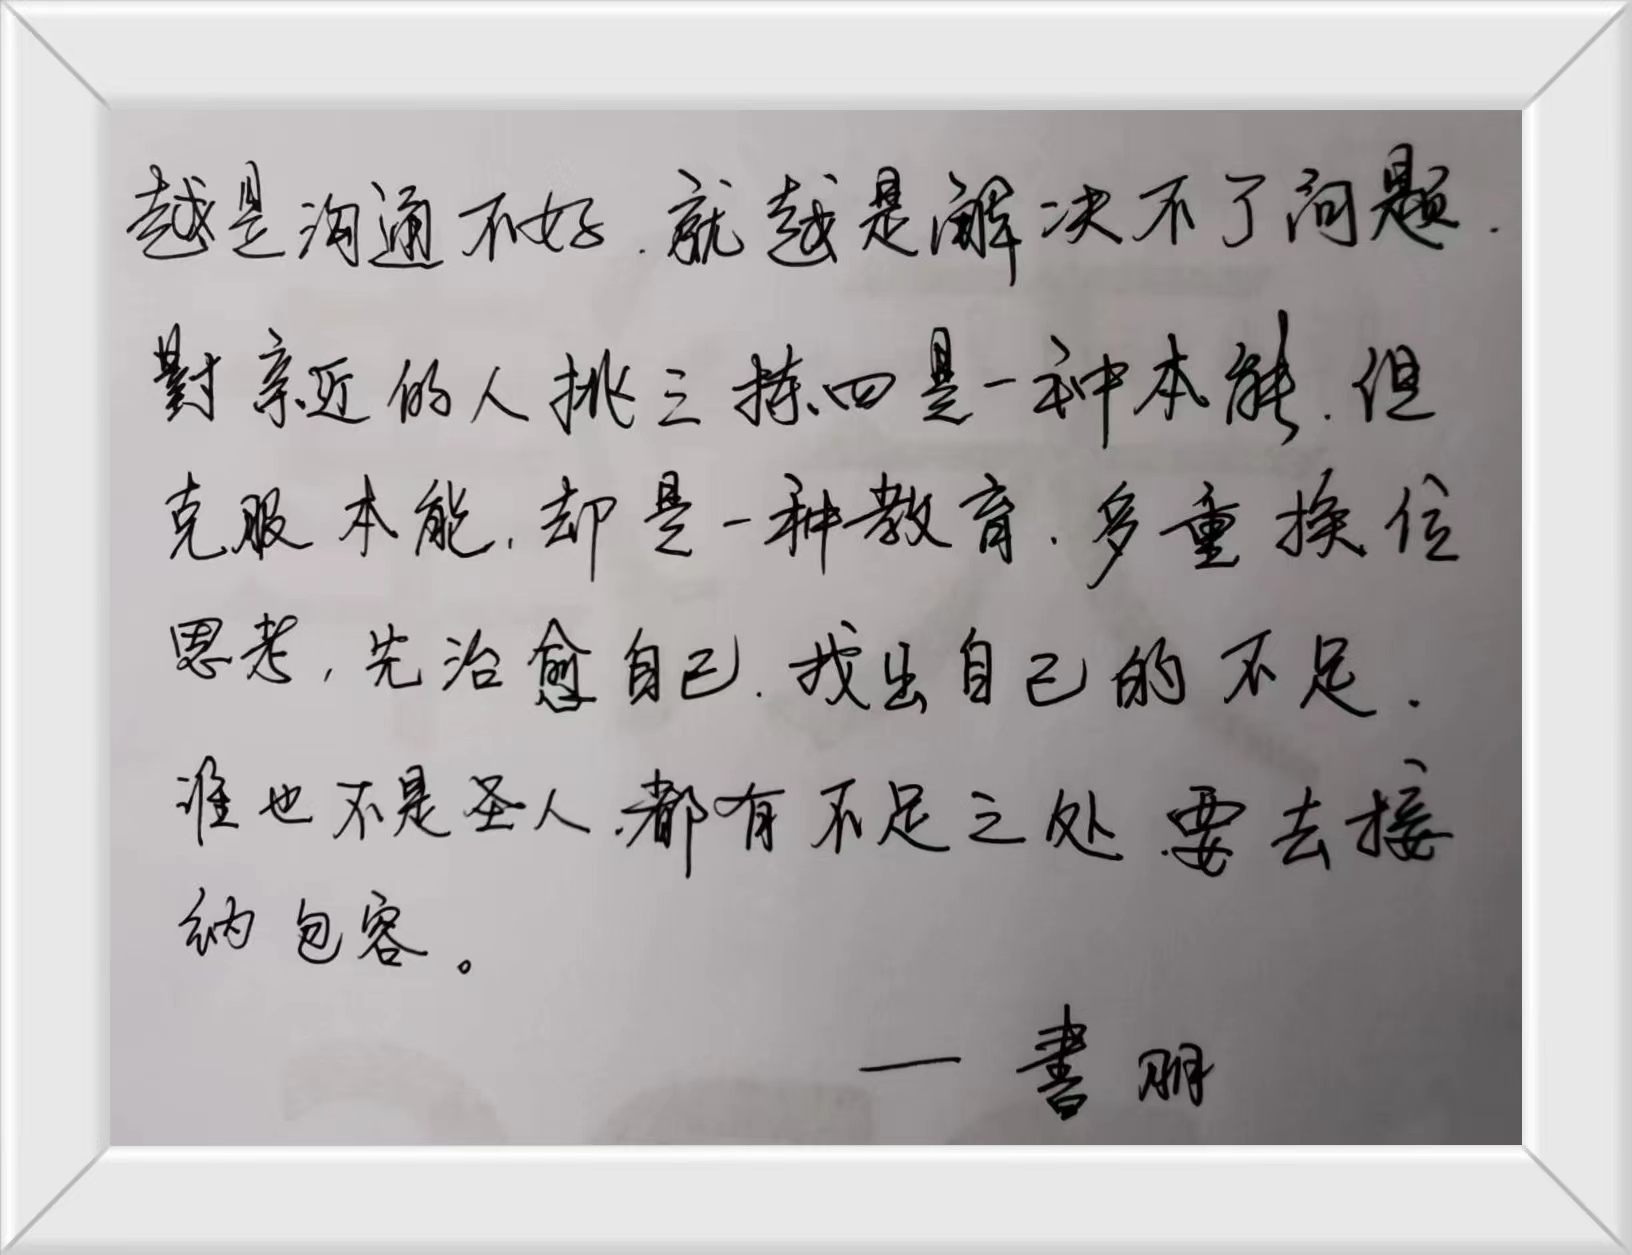 越是沟通不好.就越是解决不了问题.
對亲近的人挑三拣四是一种本能.但
克服本能,却是一种教育.多重换位
思考,先治愈自己.找出自己的不足.
谁也不是圣人.都有不足之处.要去接
纳包容。
—書朋